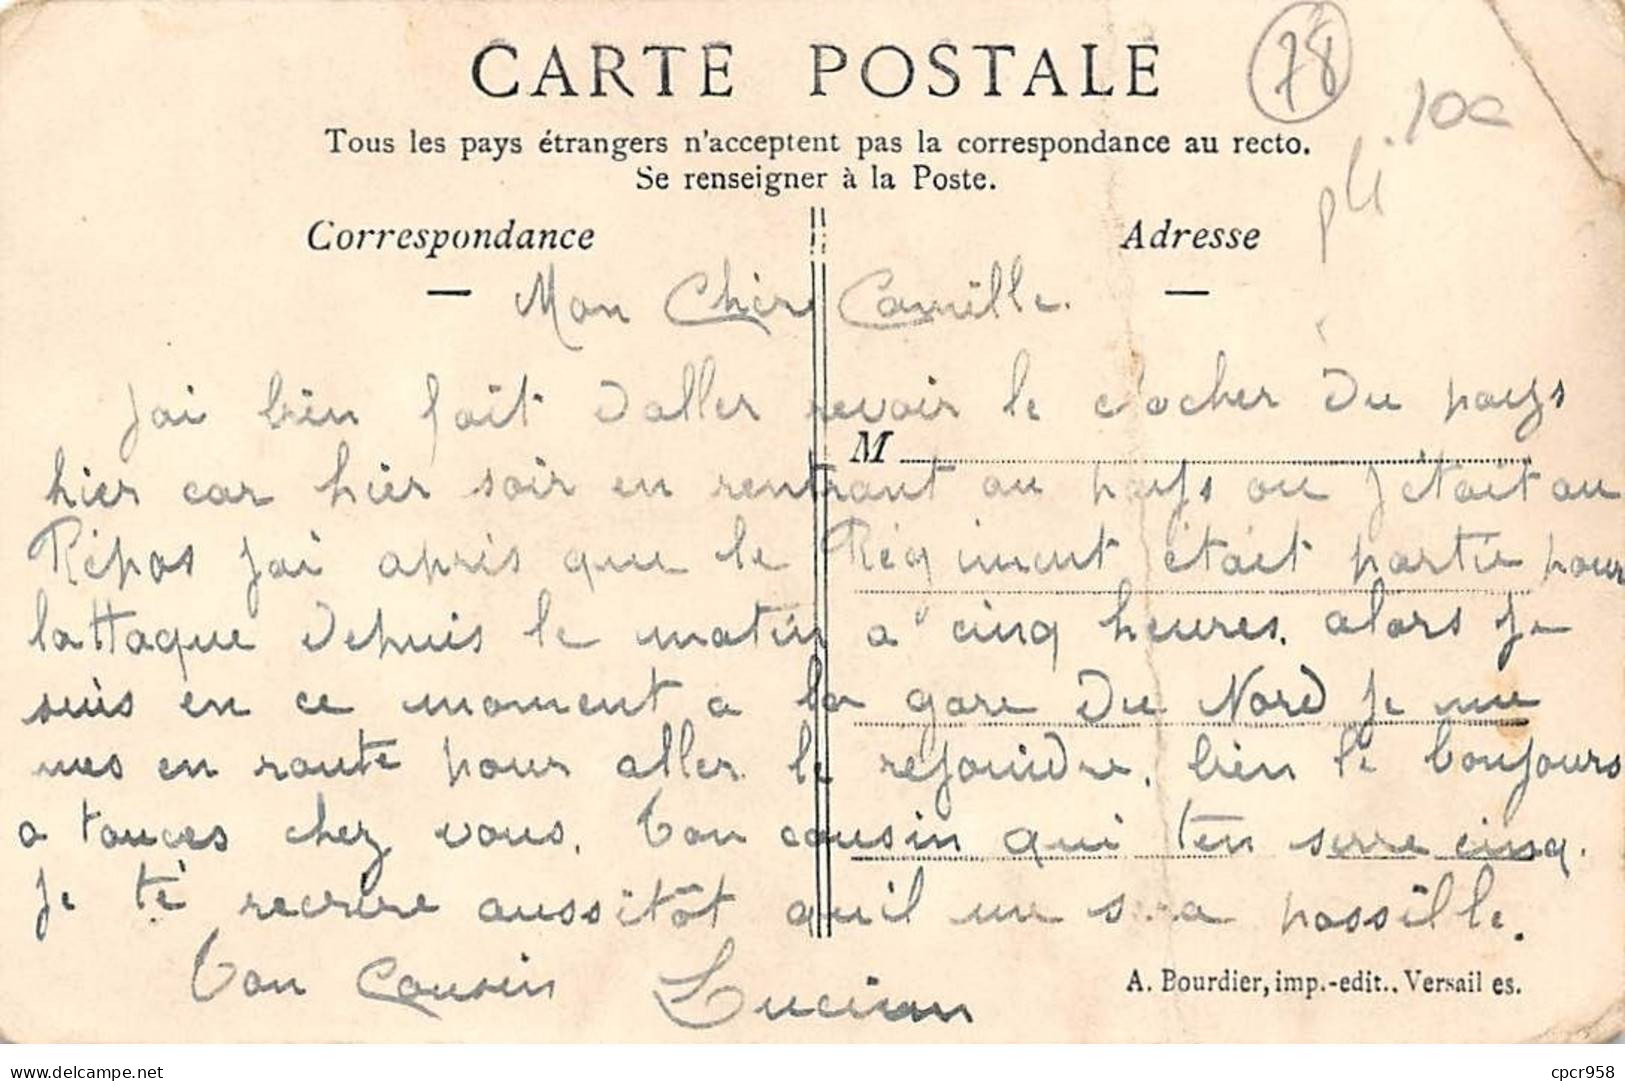 CARTE POSTALE
78
10e
pli
Tous les pays étrangers n'acceptent pas la correspondance au recto.
Se renseigner à la Poste.
Correspondance
Adresse
Mon Chère Camille.
Jai bien fait daller revoir le clocher du pays
M
hier car hier soir en rentrant au pays ou jétait au
Répos jai apris que le Régiment était partie pour
lattaque depuis le matin a cinq heures. alors je
suis en ce moment a la gare du Nord je me
mes en route pour aller le rejoindre. bien le bonjours
a toutes chez vous. Ton cousin qui ten serre cinq.
Je te recrire aussitôt quil me sera possible.
Ton Cousin Lucien
A. Bourdier, imp.-edit.. Versail es.
cpcr958